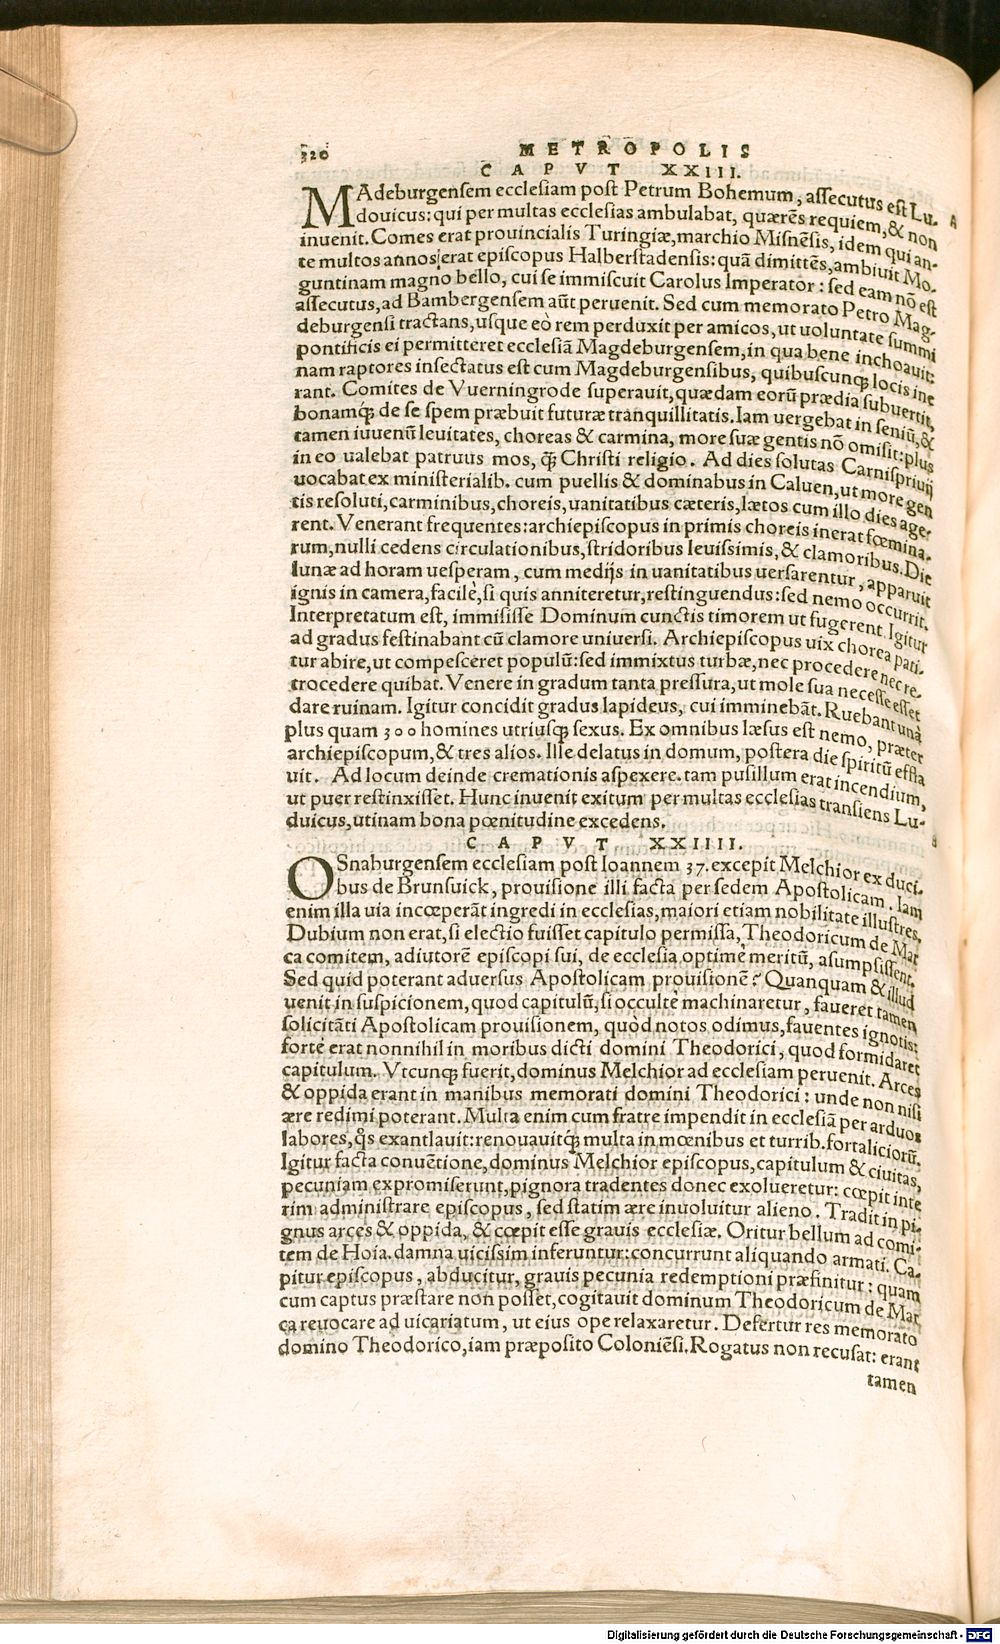 320 METROPOLIS
CAPVT XXIII.
MAdeburgensem ecclesiam post Petrum Bohemum, assecutus est Lu-
douicus: qui per multas ecclesias ambulabat, quærẽs requiem, & non
inuenit. Comes erat prouincialis Turingiæ, marchio Misnẽsis, idem qui an-
te multos annos erat episcopus Halberstadensis: quã dimittẽs, ambiuit Mo-
guntinam magno bello, cui se immiscuit Carolus Imperator: sed eam nõ est
assecutus, ad Bambergensem aũt peruenit. Sed cum memorato Petro Mag-
deburgensi tractans, usque eò rem perduxit per amicos, ut uoluntate summi
pontificis ei permitteret ecclesiã Magdeburgensem, in qua bene inchoauit:
nam raptores insectatus est cum Magdeburgensibus, quibuscunq; locis ine
rant. Comites de Vuerningrode superauit, quædam eorũ prædia subuertit,
bonamq́; de se spem præbuit futuræ tranquillitatis. Iam uergebat in seniũ, &
tamen iuuenũ leuitates, choreas & carmina, more suæ gentis nõ omisit: plus
in eo ualebat patruus mos, q̃ Christi religio. Ad dies solutas Carnispriuij
uocabat ex ministerialib. cum puellis & dominabus in Caluen, ut more gen
tis resoluti, carminibus, choreis, uanitatibus cæteris, lætos cum illo dies age-
rent. Venerant frequentes: archiepiscopus in primis choreis inerat fœmina-
rum, nulli cedens circulationibus, stridoribus leuissimis, & clamoribus. Die
lunæ ad horam uesperam, cum medijs in uanitatibus uersarentur, apparuit
ignis in camera, facilè, si quis anniteretur, restinguendus: sed nemo occurrit.
Interpretatum est, immisisse Dominum cunctis timorem ut fugerent. Igitur
ad gradus festinabant cũ clamore uniuersi. Archiepiscopus uix chorea pati-
tur abire, ut compesceret populũ: sed immixtus turbæ, nec procedere nec re-
trocedere quibat. Venere in gradum tanta pressura, ut mole sua necesse esset
dare ruinam. Igitur concidit gradus lapideus, cui imminebãt. Ruebant unà
plus quam 300 homines utriusq; sexus. Ex omnibus læsus est nemo, præter
archiepiscopum, & tres alios. Ille delatus in domum, postera die spiritũ effla
uit. Ad locum deinde cremationis aspexere. tam pusillum erat incendium,
ut puer restinxisset. Hunc inuenit exitum per multas ecclesias transiens Lu-
duicus, utinam bona pœnitudine excedens.
CAPVT XXIIII.
OSnaburgensem ecclesiam post Ioannem 37. excepit Melchior ex duci-
bus de Brunsuick, prouisione illi facta per sedem Apostolicam. Iam
enim illa uia incœperãt ingredi in ecclesias, maiori etiam nobilitate illustres.
Dubium non erat, si electio fuisset capitulo permissa, Theodoricum de Mar
ca comitem, adiutorẽ episcopi sui, de ecclesia optimè meritũ, asumpsissent.
Sed quid poterant aduersus Apostolicam prouisionẽ? Quanquam & illud
uenit in suspicionem, quod capitulũ, si occultè machinaretur, faueret tamen
solicitãti Apostolicam prouisionem, quòd notos odimus, fauentes ignotis:
fortè erat nonnihil in moribus dicti domini Theodorici, quod formidaret
capitulum. Vtcunq; fuerit, dominus Melchior ad ecclesiam peruenit. Arces
& oppida erant in manibus memorati domini Theodorici: unde non nisi
ære redimi poterant. Multa enim cum fratre impendit in ecclesiã per arduos
labores, q̊s exantlauit: renouauitq́; multa in mœnibus et turrib. fortaliciorũ.
Igitur facta conuẽtione, dominus Melchior episcopus, capitulum & ciuitas,
pecuniam expromiserunt, pignora tradentes donec exolueretur: cœpit inte
rim administrare episcopus, sed statim ære inuoluitur alieno. Tradit in pi-
gnus arces & oppida, & cœpit esse grauis ecclesiæ. Oritur bellum ad comi-
tem de Hoia. damna uicissim inferuntur: concurrunt aliquando armati. Ca-
pitur episcopus, abducitur, grauis pecunia redemptioni præfinitur: quam
cum captus præstare non posset, cogitauit dominum Theodoricum de Mar
ca reuocare ad uicariatum, ut eius ope relaxaretur. Defertur res memorato
domino Theodorico, iam præposito Coloniẽsi. Rogatus non recusat: erant
tamen
A
B
Digitalisierung gefördert durch die Deutsche Forschungsgemeinschaft - DFG